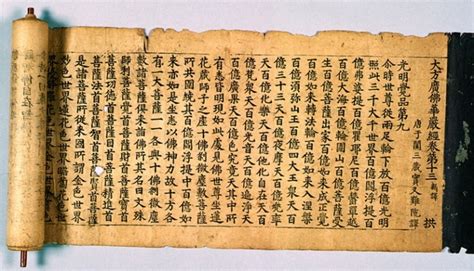 大方廣佛華嚴經卷第十三 新譯 拱
唐于闐三藏實叉難陀譯
光明覺品第九
尒時世尊從兩足輪下放百億光明
照此三千大千世界百億閻浮提百
億弗婆提百億瞿耶尼百億鬱單越
百億大海百億輪圍山百億菩薩受
生百億菩薩出家百億如來成正覺
百億如來轉法輪百億如來入涅槃
百億須彌山王百億四天王衆天百
億三十三天百億夜摩天百億兜率
天百億化樂天百億他化自在天百
億梵衆天百億光音天百億遍淨天
百億廣果天百億色究竟天其中所
有悉皆明現如此處見佛世尊坐蓮
花藏師子之座十佛刹微塵數菩薩
所共圍繞其百億閻浮提中百億如
來亦如是坐悉以佛神力故十方各
有一大菩薩一一各與十佛刹微塵
數諸菩薩俱來詣佛所其名曰文殊
師利菩薩覺首菩薩財首菩薩寶首
菩薩功德首菩薩目首菩薩精進首
菩薩法首菩薩智首菩薩賢首菩薩
是諸菩薩所從來國所謂金色世界
妙色世界蓮花色世界瞻蔔花色世